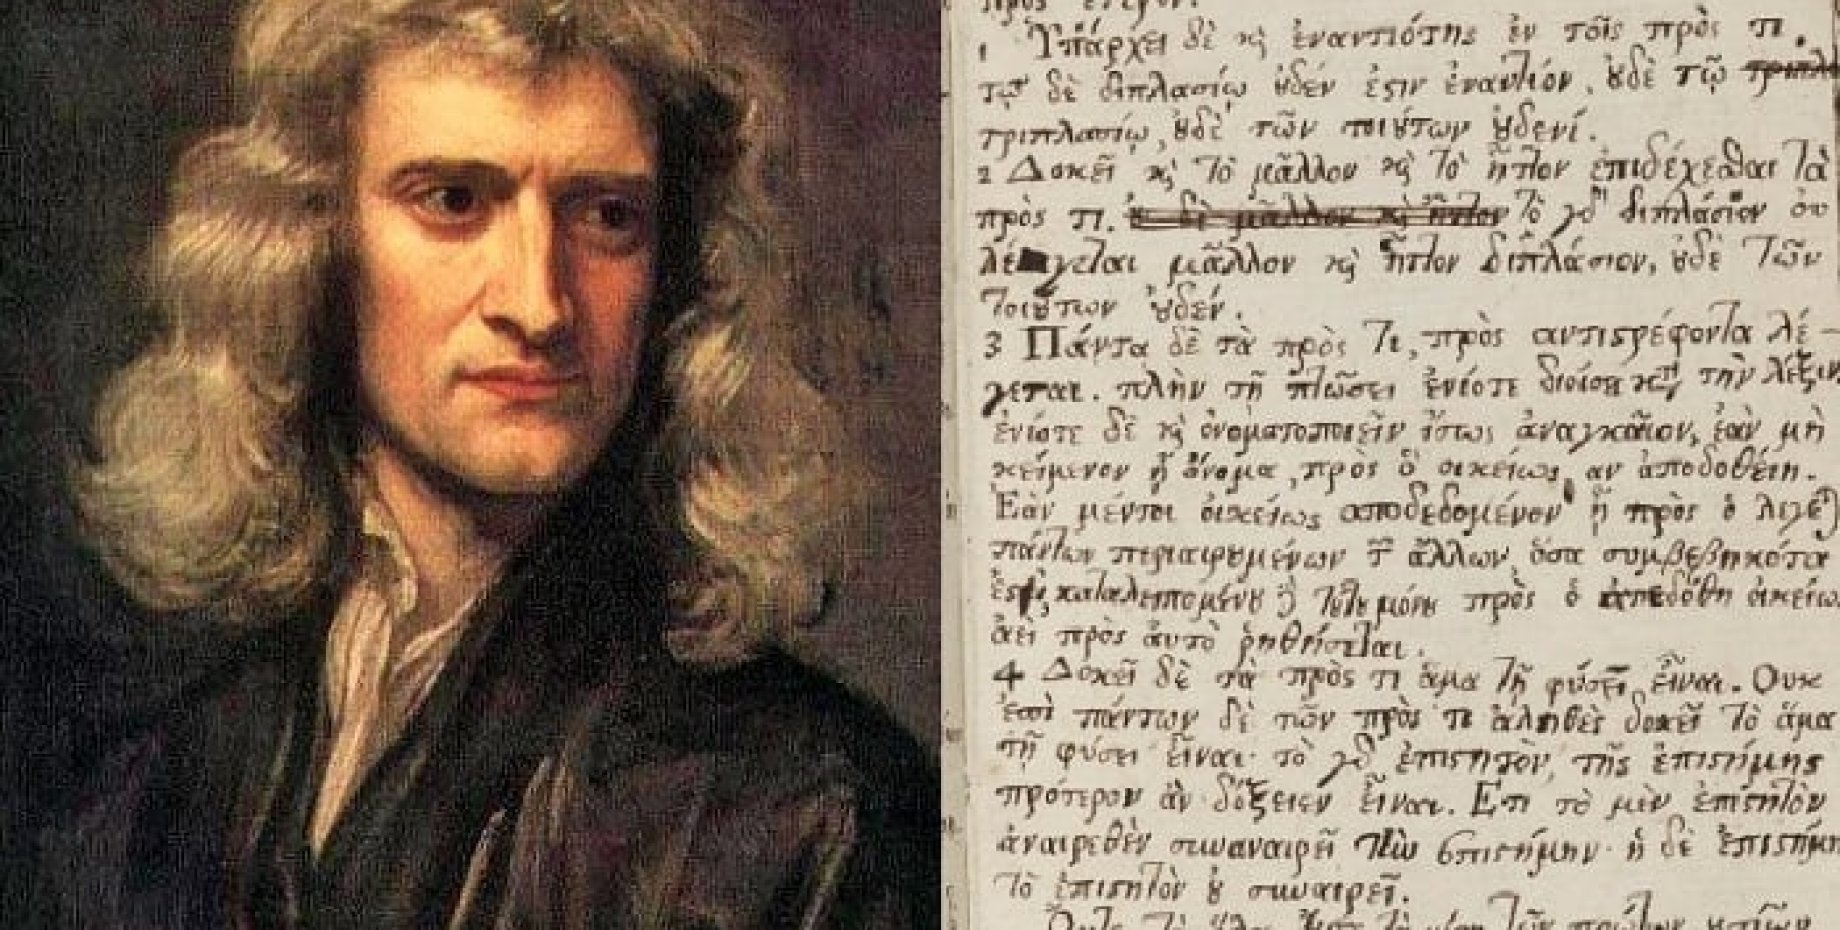 πρὸς ἕτερον.
1 Ὑπάρχει δὲ κ̀ ἐναντιότης ἐν τοῖς πρὸς τι.
τῷ δὲ διπλασίῳ ȣ̓δέν ἐϛιν ἐναντίον, ȣ̓δὲ τῷ
τριπλασίῳ, ȣ̓δὲ τῶν τοιȣ́των ȣ̓δενί.
2 Δοκεῖ κ̀ τὸ μᾶλλον κ̀ τὸ ἧττον ἐπιδέχεσθαι τὰ
πρὸς τι. ȣ̓ δὲ μᾶλλον κ̀ ἧττον τὸ γδ διπλάσιον ȣ̓
λέγεται μᾶλλον κ̀ ἧττον διπλάσιον, ȣ̓δὲ τῶν
τοιȣ́των ȣ̓δέν.
3 Πάντα δὲ τὰ πρὸς τι, πρὸς αντιϛρέφοντα λέ-
γεται. πλὴν τῇ πτώσει ἐνίοτε διοίσει κτ̀ τὴν λέξιν
ἐνίοτε δὲ κ̀ ὀνοματοποιεῖν ἴσως ἀναγκαῖον, ἐὰν μὴ
κείμενον ᾖ ὄνομα, πρὸς ὃ οικείως αν ἀποδοθείη.
Ἐὰν μέντοι ὀικείως αποδεδομένον ᾖ πρὸς ὃ λέγε)
πάντων περιαιρȣμένων τ̃ ἄλλων, ὅσα συμβεβηκότα
ἐϛι, καταλειπομένȣ δ τȣ́τȣ μόνȣ πρὸς ὃ απεδόθη ὀικείω
ἀεὶ πρὸς ἀυτὸ ῥηθήσεται.
4 Δοκεῖ δὲ τὰ πρὸς τι ἅμα τῇ φύσει εἶναι. Ουκ
ἐπὶ πάντων δὲ τῶν πρὸς τι ἀληθὲς δοκεῖ τὸ ἅμα
τῇ φύσει εἶναι· τὸ γδ ἐπιϛητὸν, τῆς ἐπιϛήμης
πρότερον ἂν δόξειεν εἶναι. Ετι τὸ μὲν ἐπιϛητὸν
ἀναιρεθὲν συναναιρεῖ τὴν ἐπιϛήμην· ἡ δὲ ἐπιϛήμη
τὸ ἐπιϛητὸν ȣ̓ συναιρεῖ.